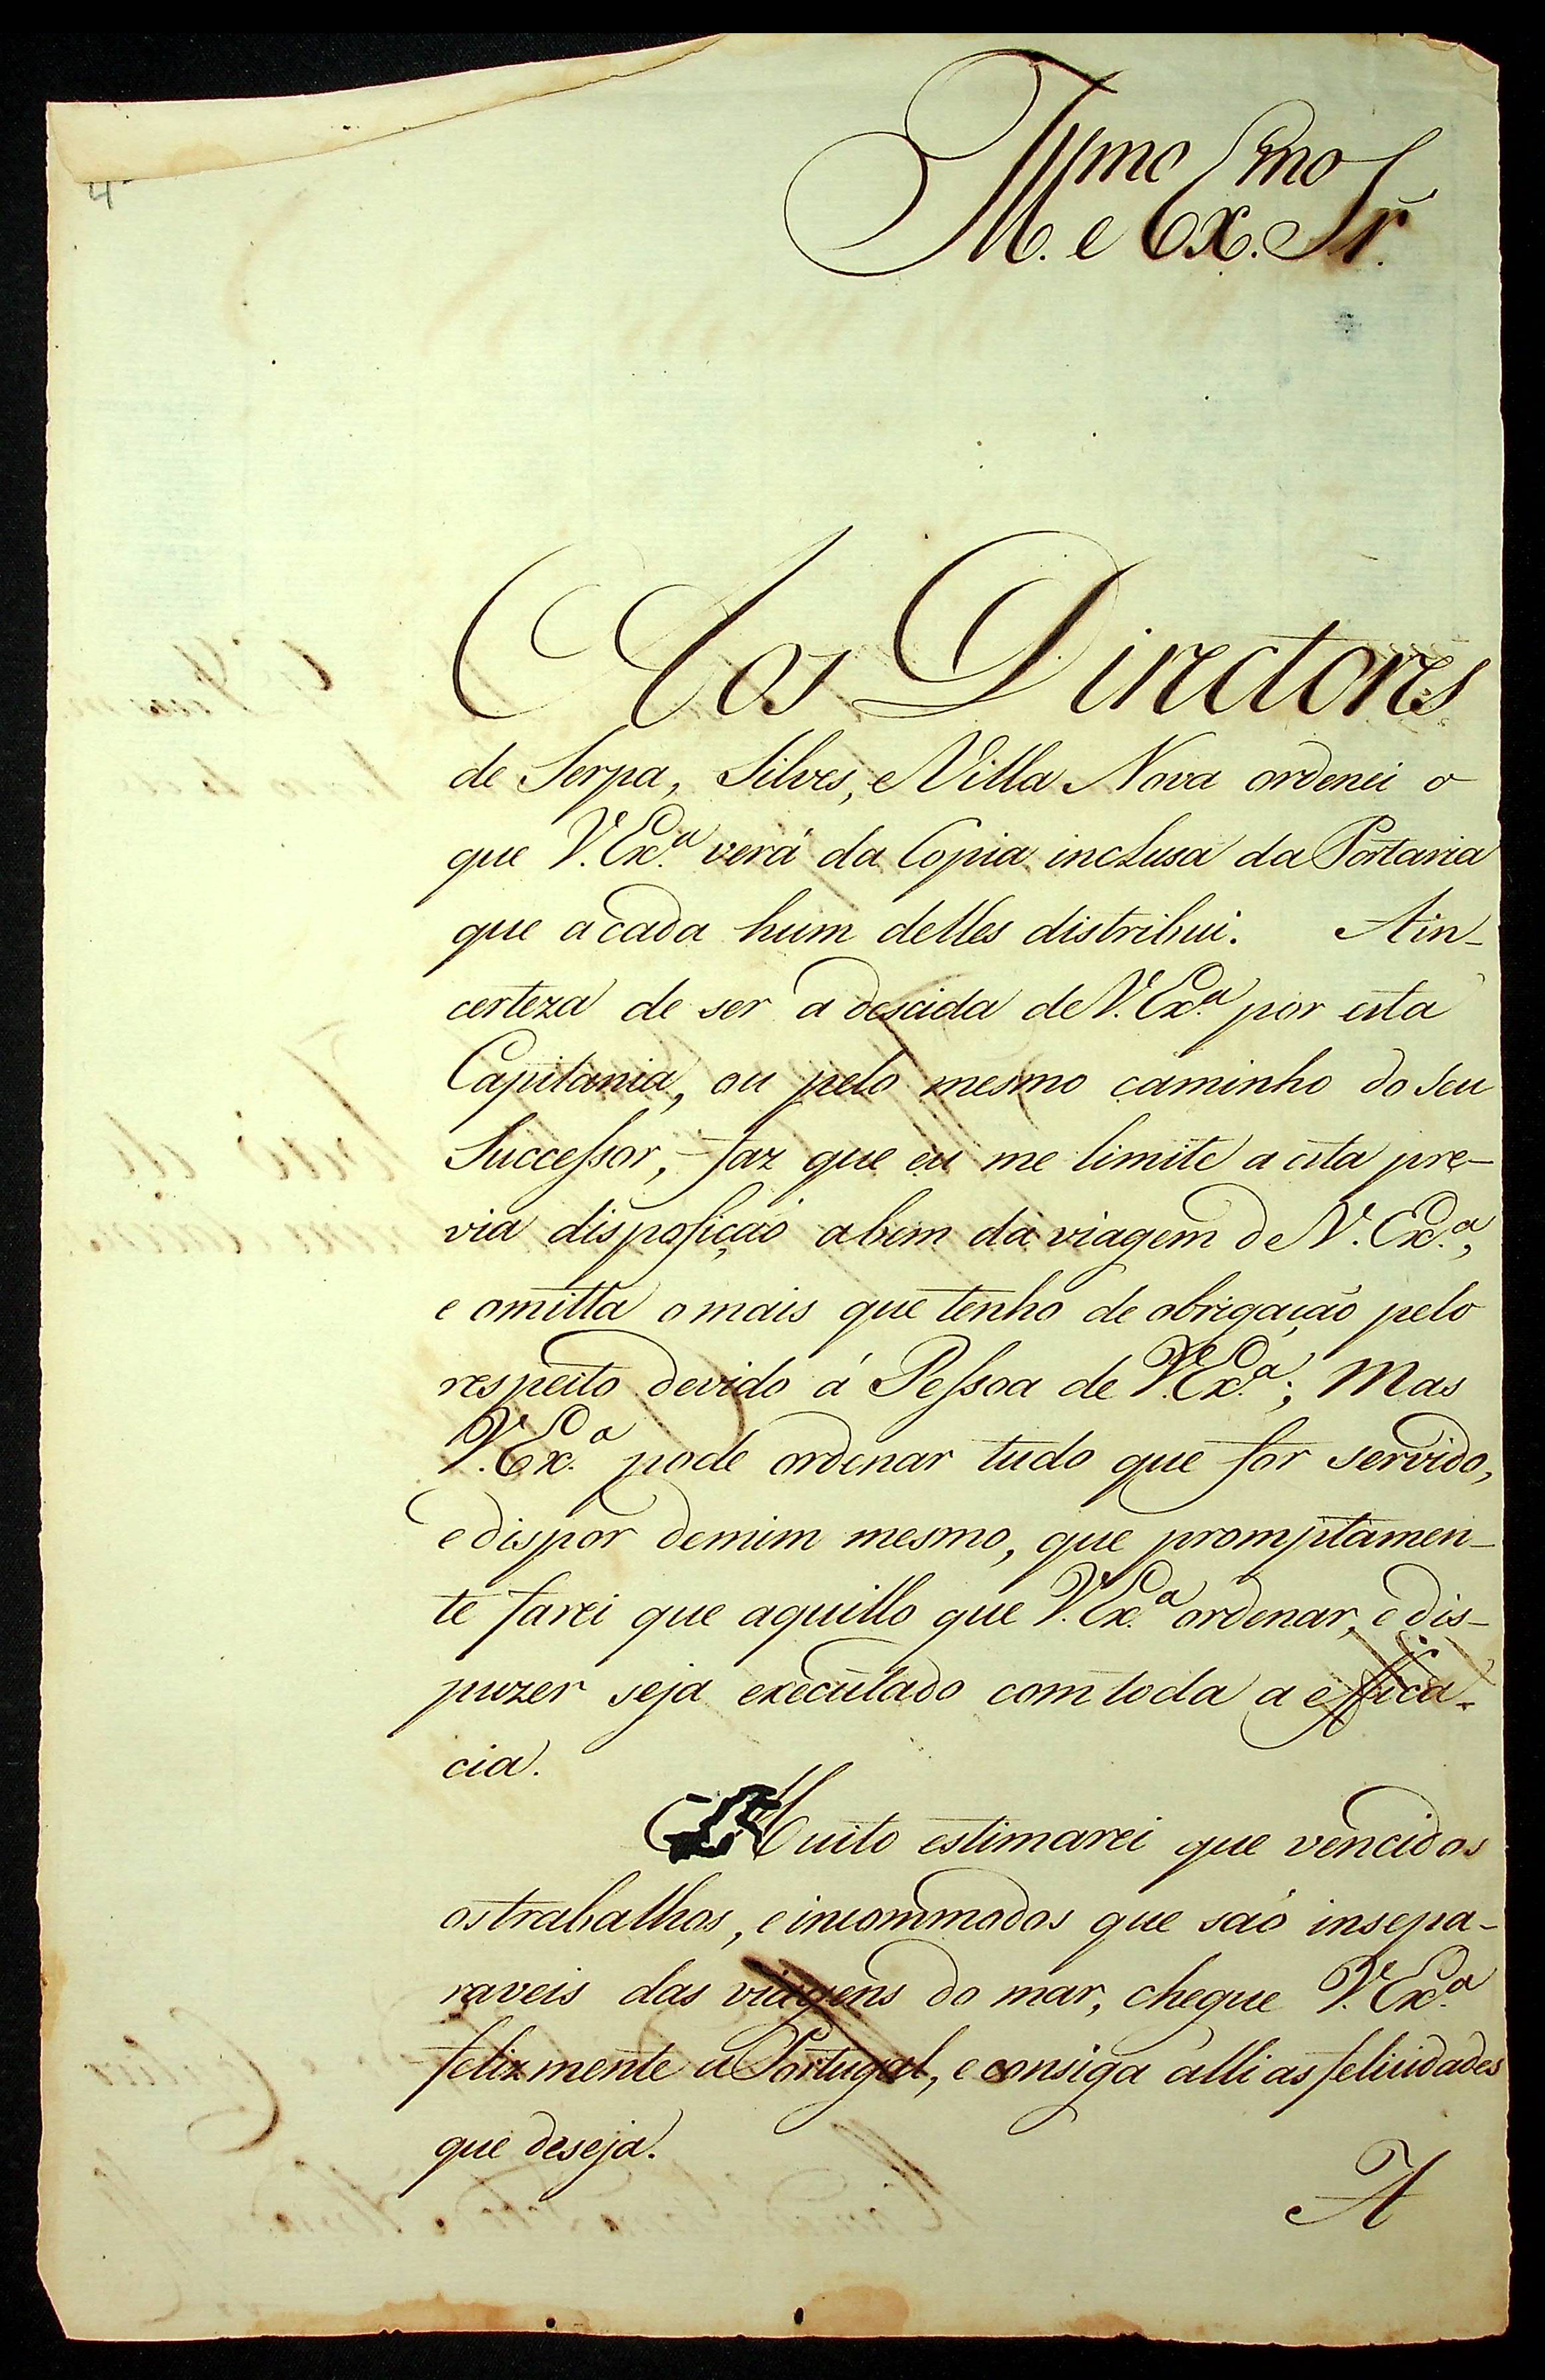 4
Ill.mo e Ex.mo Sr.
Aos Directores
de Serpa, Silves, e Villa Nova ordenei o
que V. Ex.ª verá da Copia inclusa da Portaria
que a cada hum delles distribui. A in-
certeza de ser a descida de V. Ex.ª por esta
Capitania, ou pelo mesmo caminho do seu
Successor, faz que eu me limite a esta pre-
via disposiçaõ a bem da viagem de V. Ex.ª,
e omitta o mais que tenho de obrigaçaõ pelo
respeito devido á Pessoa de V. Ex.ª; Mas
V. Ex.ª pode ordenar tudo que for servido,
e dispor de mim mesmo, que promptamen-
te farei que aquillo que V. Ex.ª ordenar, e dis-
puzer seja executado com toda a effica-
cia.
Muito estimarei que vencidos
os trabalhos, e incommodos que saõ insepa-
raveis das viagens do mar, chegue V. Ex.ª
felizmente a Portugal, e consiga alli as felicidades
que deseja.
A